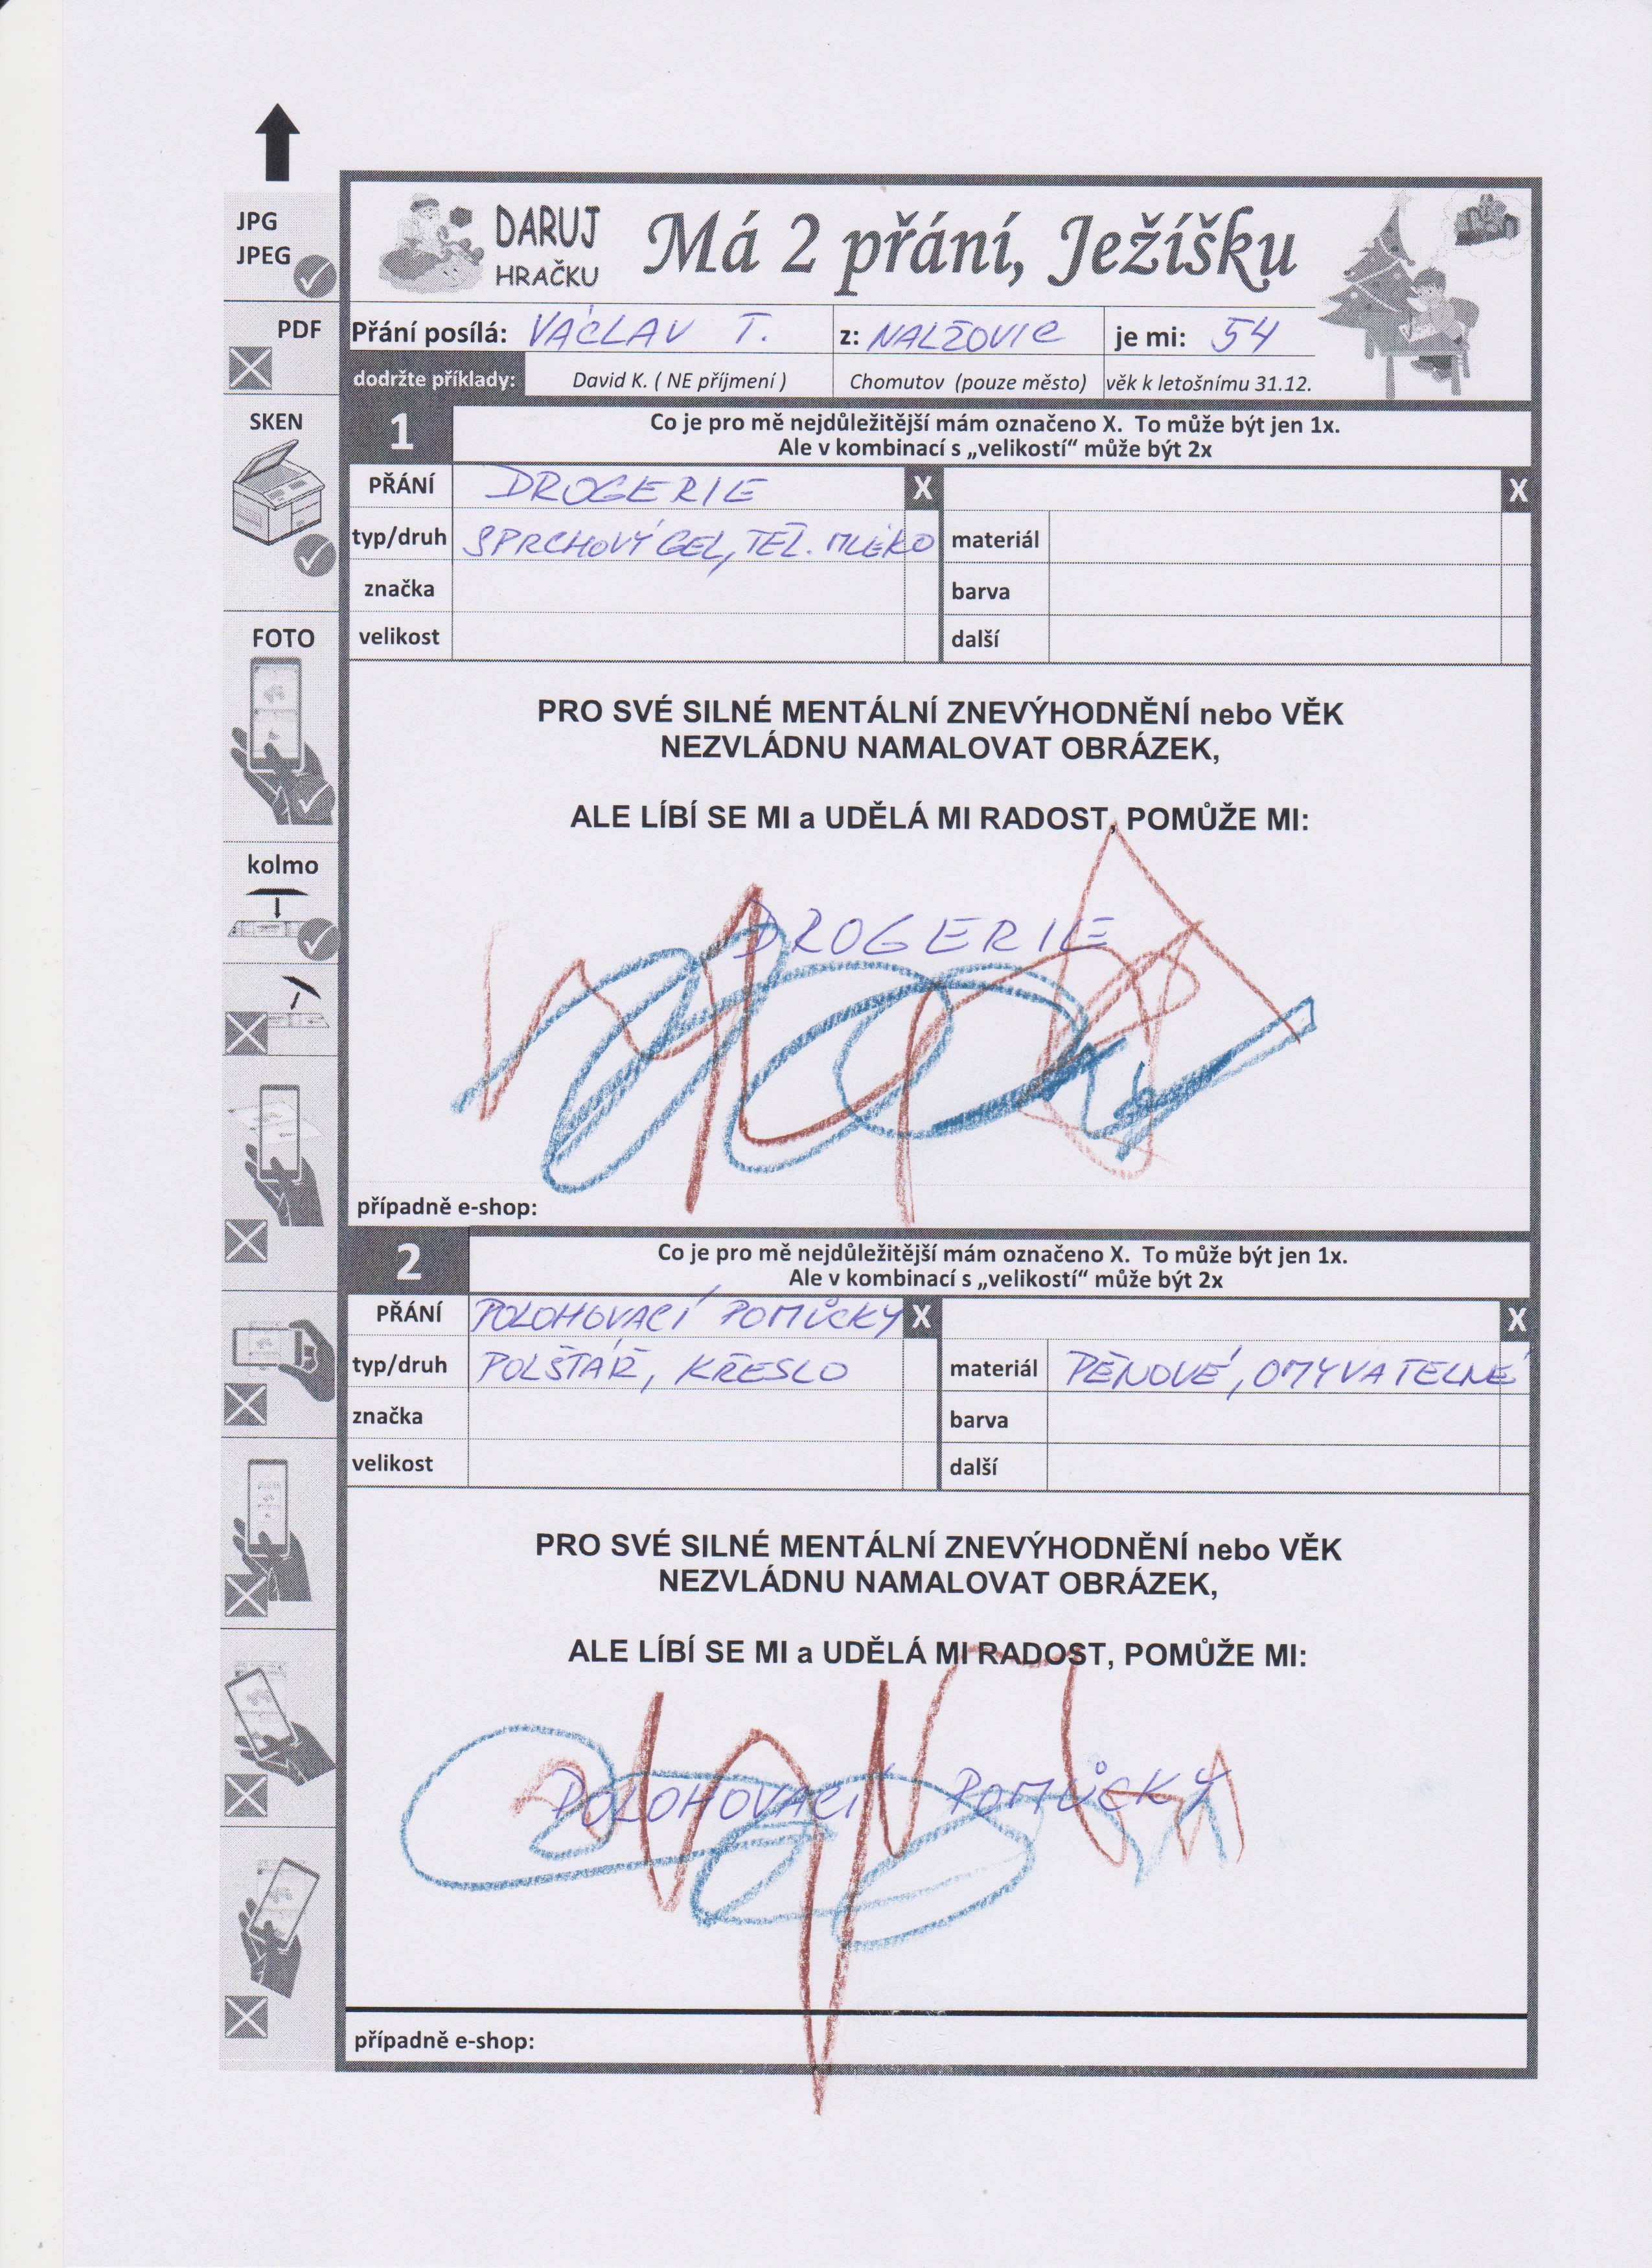 JPG
JPEG
PDF
SKEN
FOTO
kolmo
DARUJ
HRAČKU
Má 2 přání, Ježíšku
Přání posílá: VÁCLAV T. z: NALŽOVIC je mi: 54
dodržte příklady: David K. ( NE příjmení ) Chomutov (pouze město) věk k letošnímu 31.12.
1
Co je pro mě nejdůležitější mám označeno X. To může být jen 1x.
Ale v kombinací s „velikostí“ může být 2x
PŘÁNÍ DROGERIE X X
typ/druh SPRCHOVÝ GEL, TĚL. MLÉKO materiál
značka barva
velikost další
PRO SVÉ SILNÉ MENTÁLNÍ ZNEVÝHODNĚNÍ nebo VĚK
NEZVLÁDNU NAMALOVAT OBRÁZEK,
ALE LÍBÍ SE MI a UDĚLÁ MI RADOST, POMŮŽE MI:
DROGERIE
případně e-shop:
2
Co je pro mě nejdůležitější mám označeno X. To může být jen 1x.
Ale v kombinací s „velikostí“ může být 2x
PŘÁNÍ POLOHOVACÍ POMŮCKY X X
typ/druh POLŠTÁŘ, KŘESLO materiál PĚNOVÉ, OMYVATELNÉ
značka barva
velikost další
PRO SVÉ SILNÉ MENTÁLNÍ ZNEVÝHODNĚNÍ nebo VĚK
NEZVLÁDNU NAMALOVAT OBRÁZEK,
ALE LÍBÍ SE MI a UDĚLÁ MI RADOST, POMŮŽE MI:
POLOHOVACÍ POMŮCKY
případně e-shop: